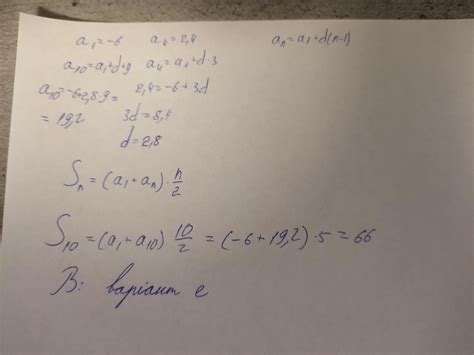 a₁=-6 a₄=2,4 aₙ=a₁+d(n-1)
a₁₀=a₁+d·9 a₄=a₁+d·3
a₁₀=-6+2,8·9= 2,4=-6+3d
=19,2 3d=8,4
d=2,8
Sₙ=(a₁+aₙ)·n/2
S₁₀=(a₁+a₁₀) 10/2 = (-6+19,2)·5=66
В: варіант е